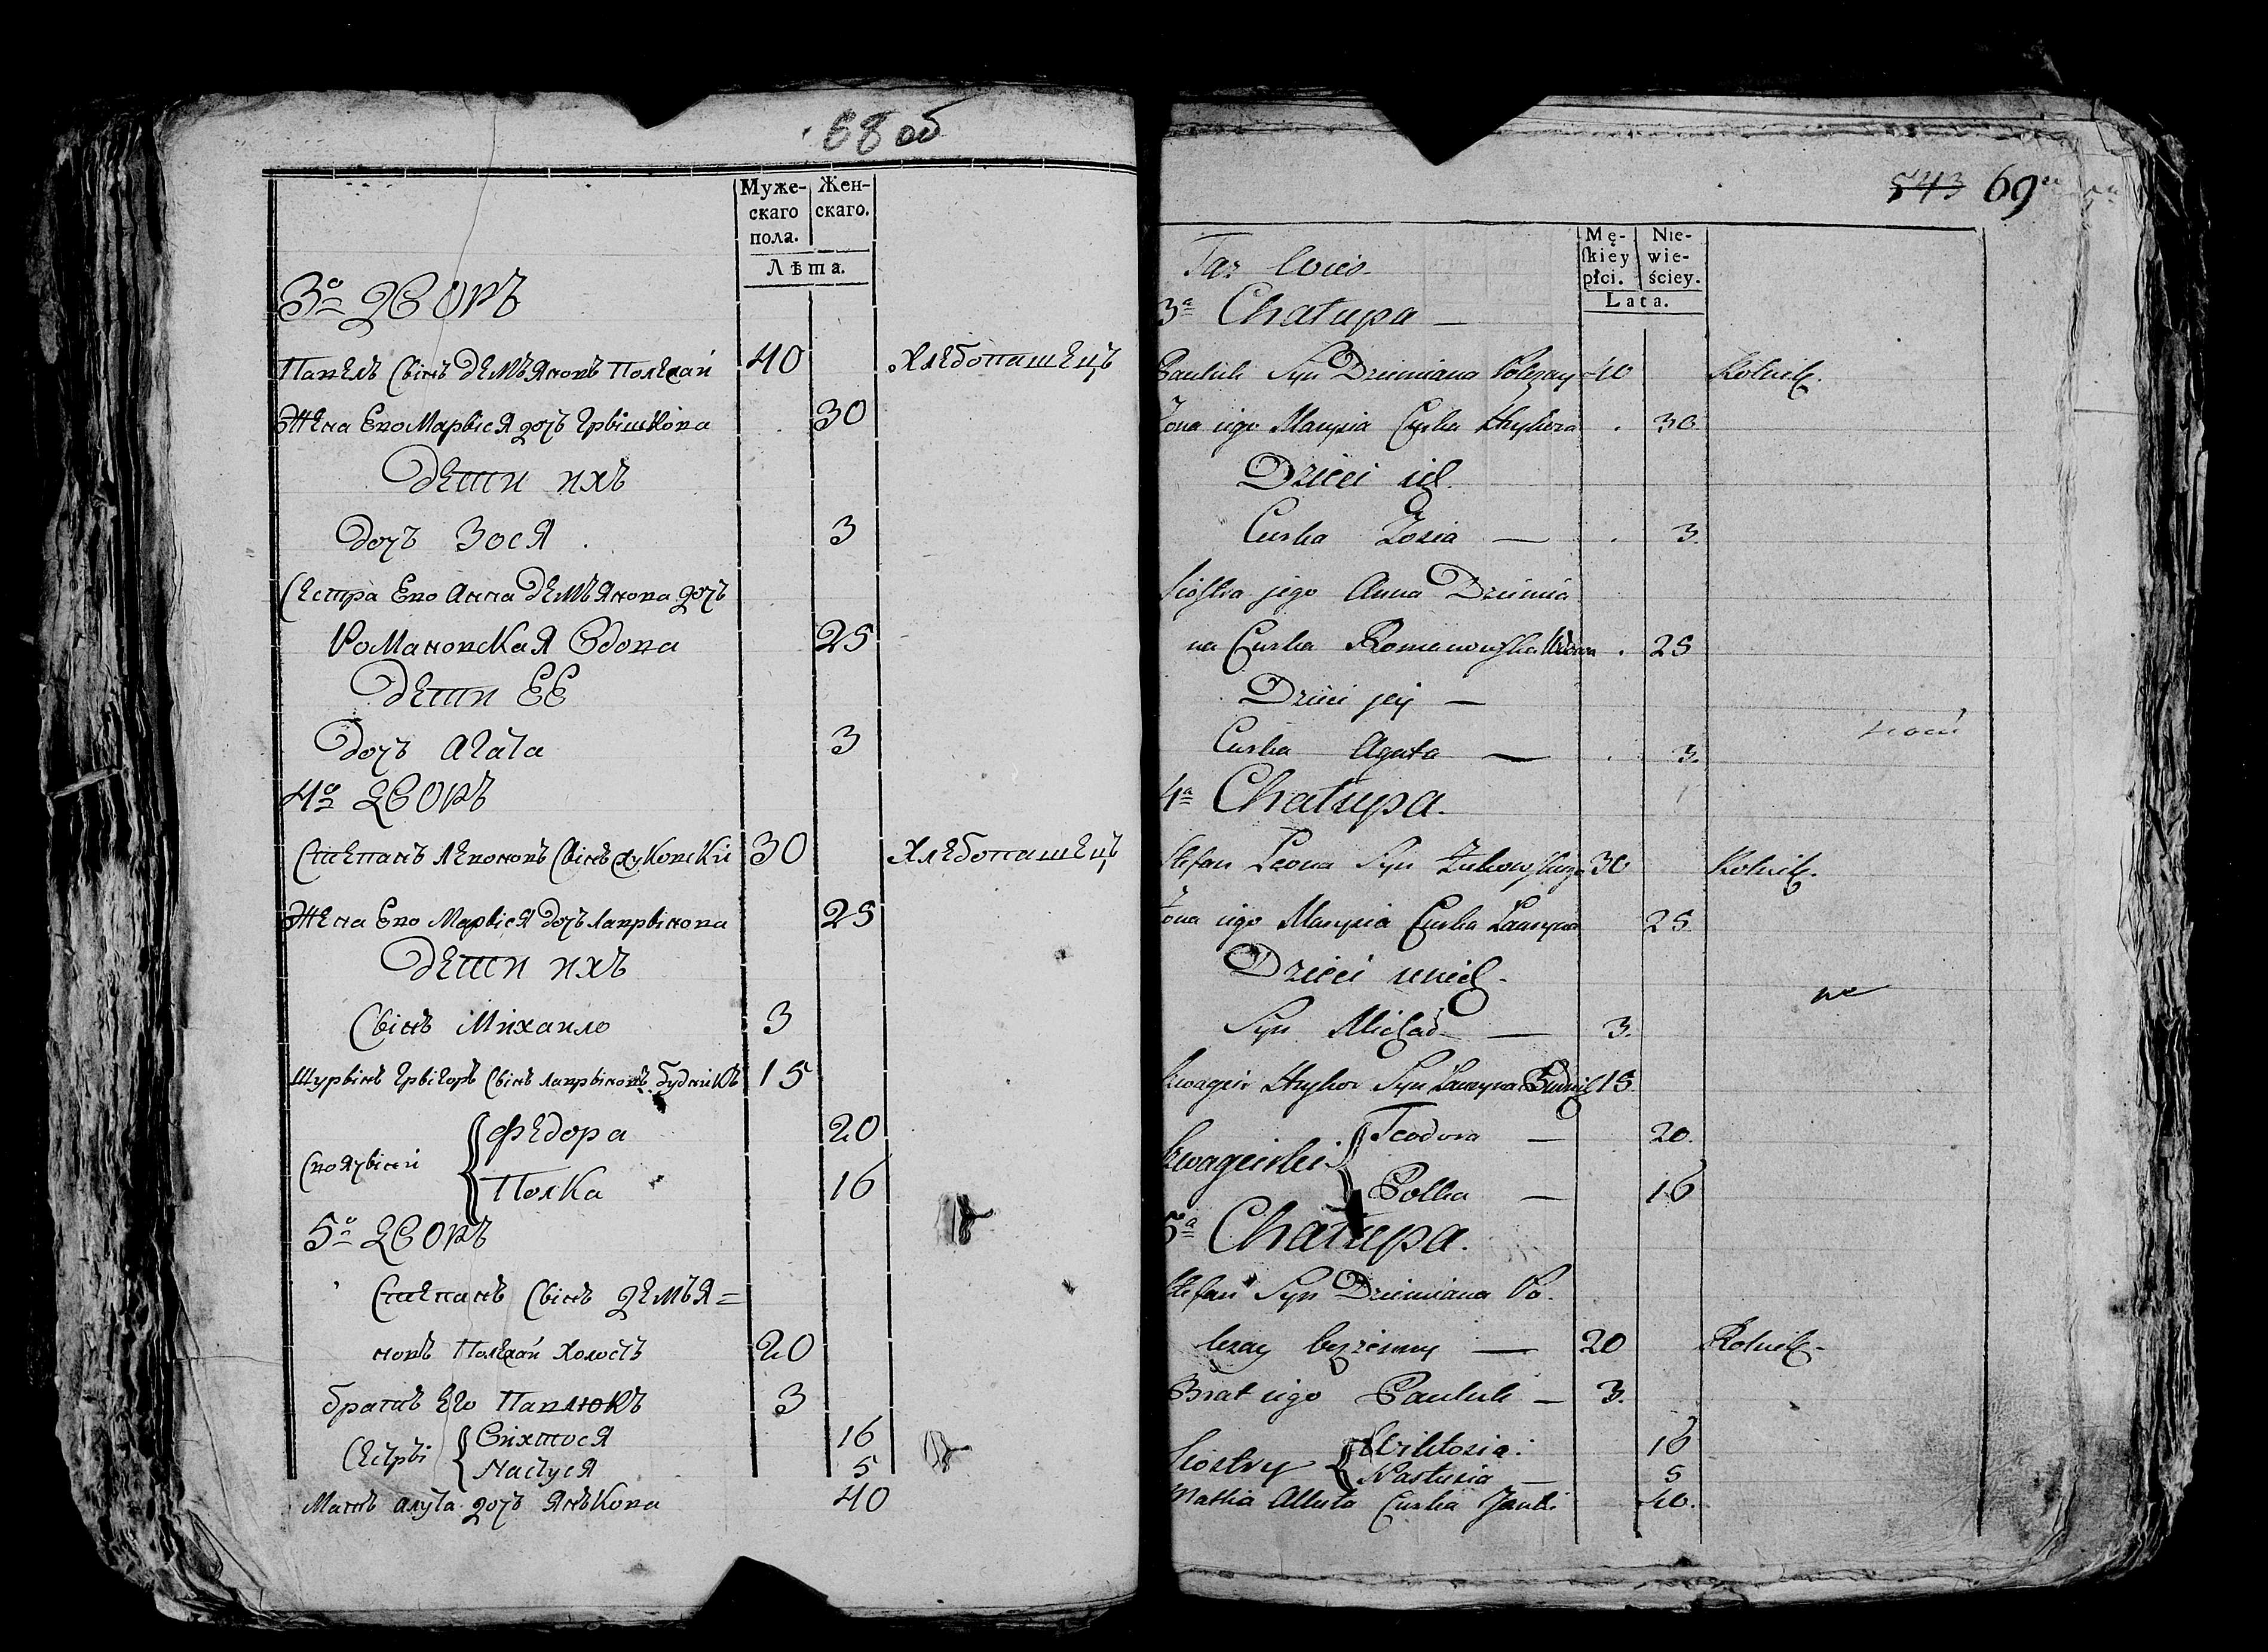 68 об
Муже-
скаго
пола.
Жен-
скаго.
Лѣта.
3о Дворъ
Павелъ Сынъ Демъяновъ Полежай 40 Хлебопашецъ
Жена Его Марыся дочь Грышкова 30
Дети ихъ
Дочь Зося 3
Сестра Его Анна Демъянова дочь
Романовская Вдова 25
Дети ЕЕ
Дочь Агата 3
4о Дворъ
Степанъ Леоновъ Сынъ Жуковски 30 Хлебопашецъ
Жена Его Марыся Дочь Лаврынова 25
Дети ихъ
Сынъ Михаило 3
Шурынъ Грыгоръ Сынъ Лаврыновъ Будникъ 15
Своячыни { Федора 20
Полка 16
5о Дворъ
Степанъ Сынъ Демъя=
новъ Полежай Холостъ 20
братъ Его Павлюкъ 3
Сестры { Вихтося 16
Настуся 5
Мать Алута дочь Янъкова 40
543 69
Mę-
skiey
płci.
Nie-
wie-
ściey.
Lata.
3a Chałupa —
Pauluk Syn Dziemiana Polezay 40 Rolnik.
Zona iego Marysia Curka Hrykora 30
Dzieci ich.
Curka Zosia — 3.
Siostra jego Anna Dziemia
na Curka Romanowska Wdowa 25
Dzieci jey —
Curka Agata — 3.
4a Chałupa.
Stefan Leona Syn Zukowskiego 30 Rolnik.
Zona iego Marysia Curka Lauryna 25
Dzieci u nich.
Syn Michał — 3.
Szwagier Hrykor Syn Lauryna Budnik 15.
Szwagierki { Teodora — 20.
Polka — 16
5a Chałupa.
Stefan Syn Dziemiana Po.
lezay bezzenny — 20 Rolnik.
Brat iego Pauluk — 3.
Siostry { Wiktosia. 16
Nastusia — 5
Matka Alluta Curka Janka 40.